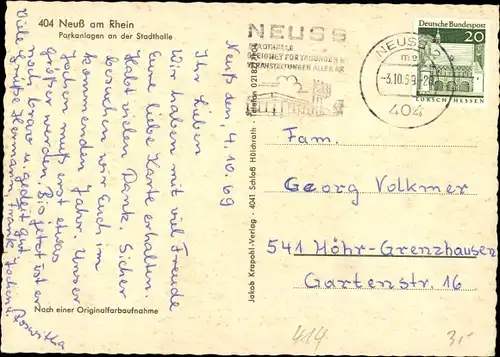 404 Neuß am Rhein
Parkanlagen an der Stadthalle
Neuß den, 4.10.69
Ihr Lieben
Wir haben mit viel Freude
Eure liebe Karte erhalten.
Habt vielen Dank. Sicher
besuchen wir Euch im
kommenden Jahr. Unser
Jochen muß erst etwas
größer werden. Bis jetzt ist er
noch brav u. gedeiht gut
Viele Grüße Hermann, Frank, Jochen u.
Roswitha
Nach einer Originalfarbaufnahme
Jakob Krapohl-Verlag · 4041 Schloß Hülchrath · Telefon
NEUSS
STADTHALLE
GEEIGNET FÜR TAGUNGEN U.
VERANSTALTUNGEN ALLER ART
NEUSS
-3.10.69
404
Deutsche Bundespost
20
LORSCH/HESSEN
Fam.
Georg Volkmer
541 Höhr-Grenzhausen
Gartenstr. 16
414
3,-